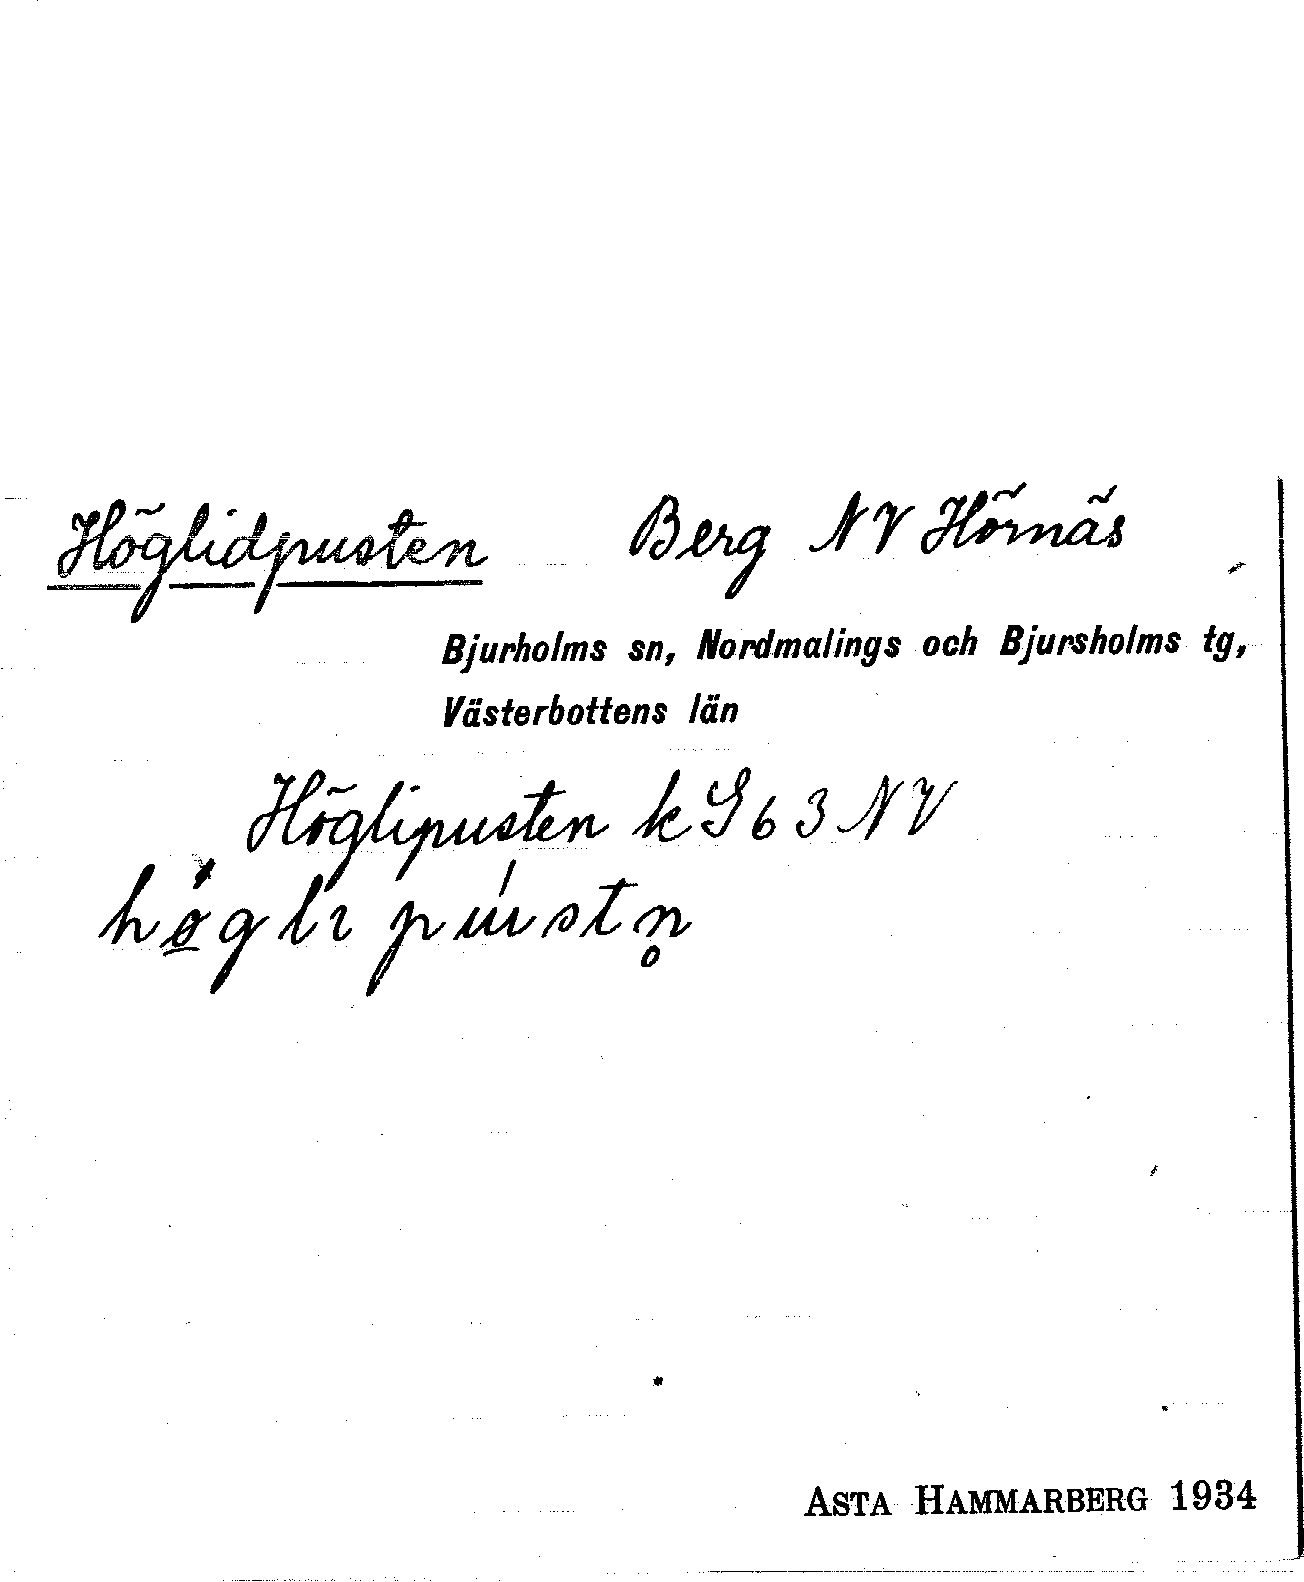 Höglidpusten Berg NV Hörnäs
Bjurholms sn, Nordmalings och Bjursholms tg,
Västerbottens län
Höglipusten k G 63 NV
høgli pustn̥
ASTA HAMMARBERG 1934